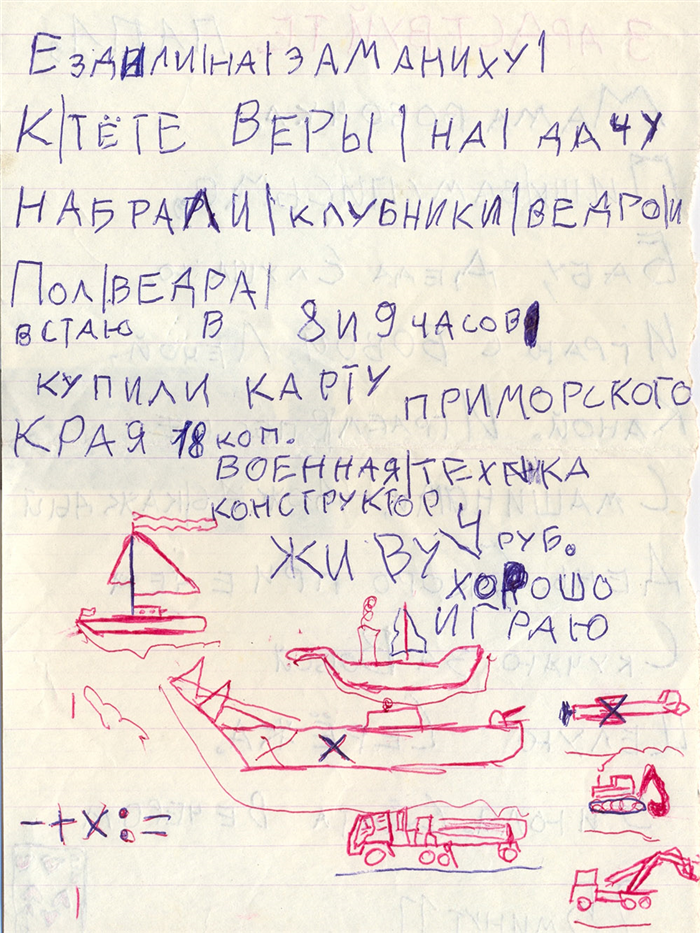 Ездили|на|заманиху|
К|тёте Веры|на|дачу
набрали|клубники|ведро|и
Пол|ведра|
встаю в 8 и 9 часов
купили карту приморского
края 18 коп.
военная|техника
конструктор 4 руб.
живу хорошо
играю
- + x : =